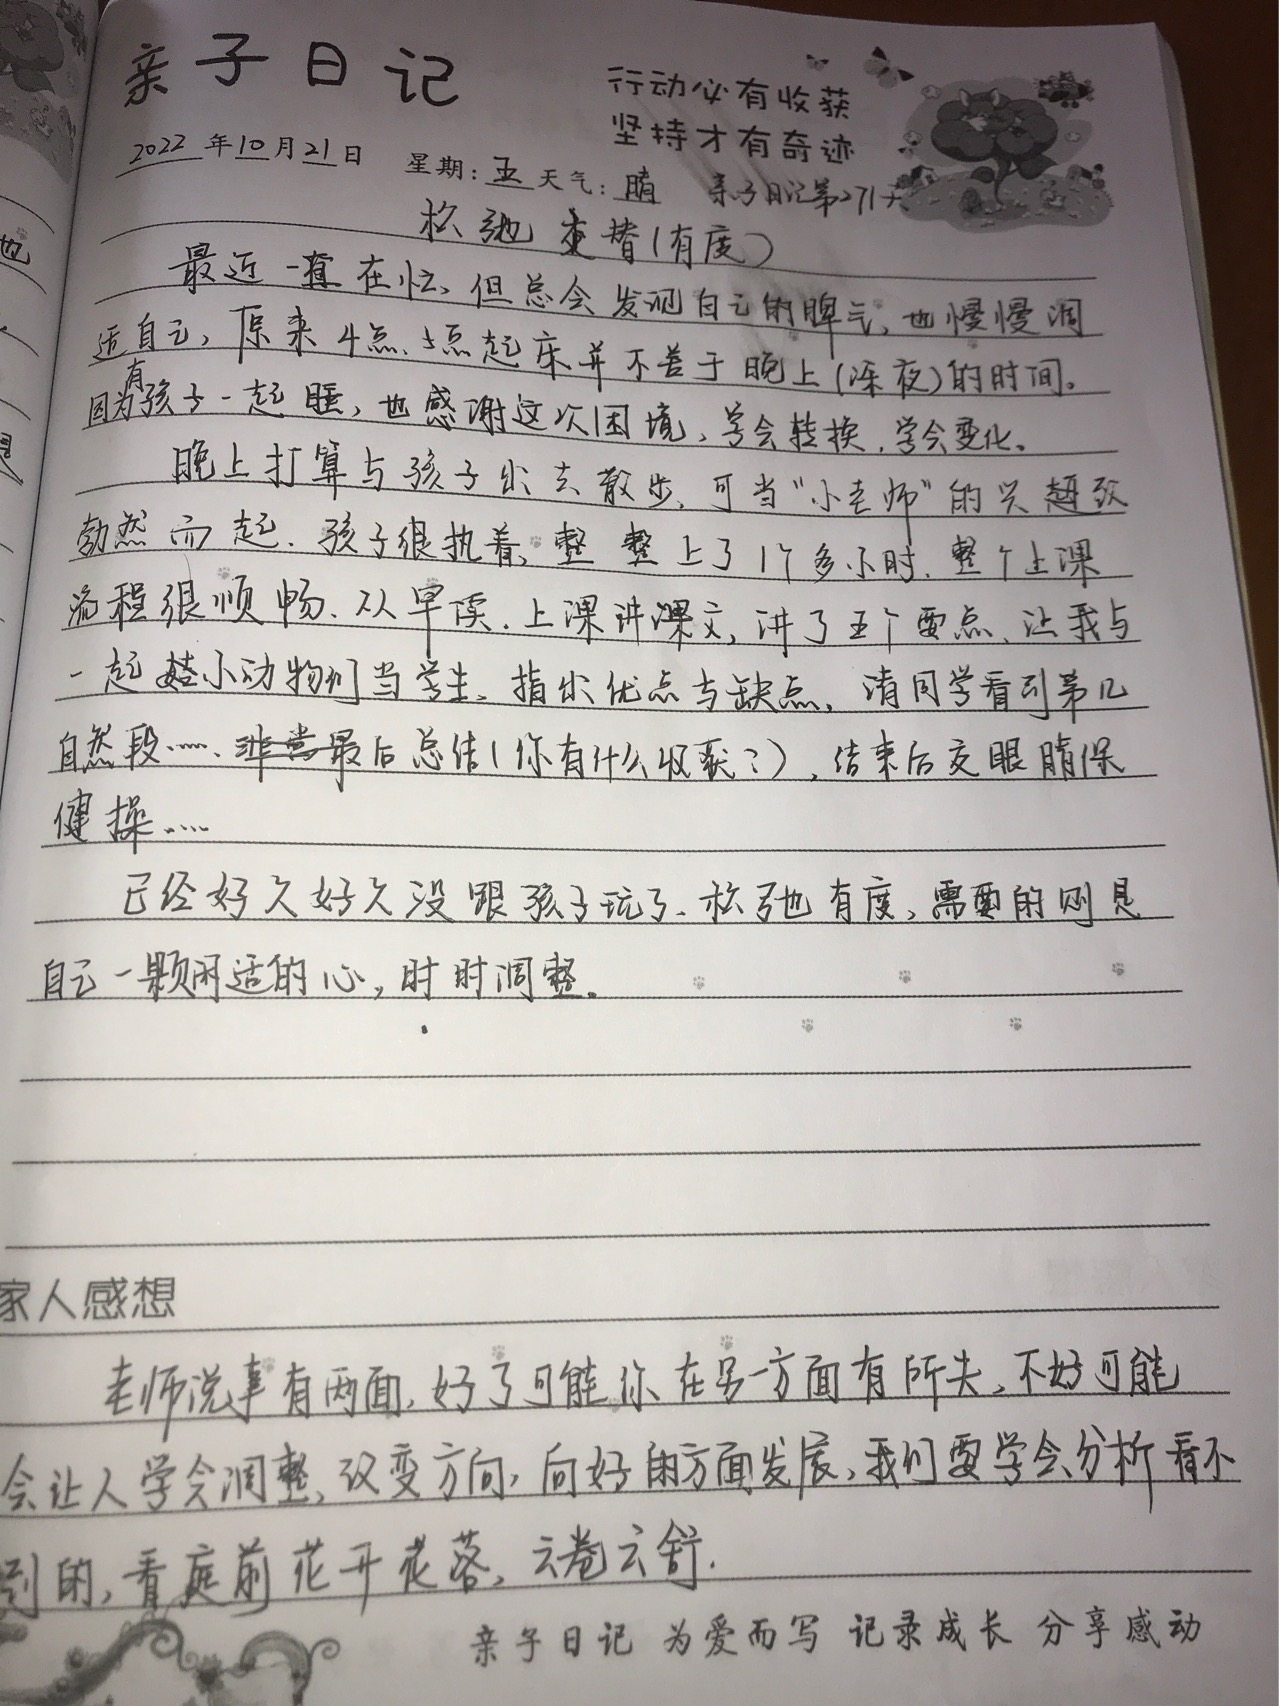 亲子日记
行动必有收获
坚持才有奇迹
2022年10月21日 星期:五 天气:晴 亲子日记第271天
松弛交替(有度)
最近一直在忙、但总会发现自己的脾气,也慢慢调
适自己,原来4点、5点起床并不差于晚上(深夜)的时间。
因为有孩子一起睡,也感谢这次困境,学会转换,学会变化。
晚上打算与孩子出去散步、可当“小老师”的兴趣致
勃然而起、孩子很执着,整整上了1个多小时、整个上课
流程很顺畅、从早读、上课讲课文,讲了五个要点、让我与
一起娃小动物们当学生、指出优点与缺点,请同学看到第几
自然段……、非常最后总结(你有什么收获?),结束后交眼睛保
健操……
已经好久好久没跟孩子玩了、松弛有度,需要的则是
自己一颗闲适的心,时时调整。
家人感想
老师说事有两面,好了可能你在另一方面有所失,不好可能
会让人学会调整,改变方向,向好的方面发展,我们要学会分析看不
到的,看庭前花开花落,云卷云舒.
亲子日记 为爱而写 记录成长 分享感动